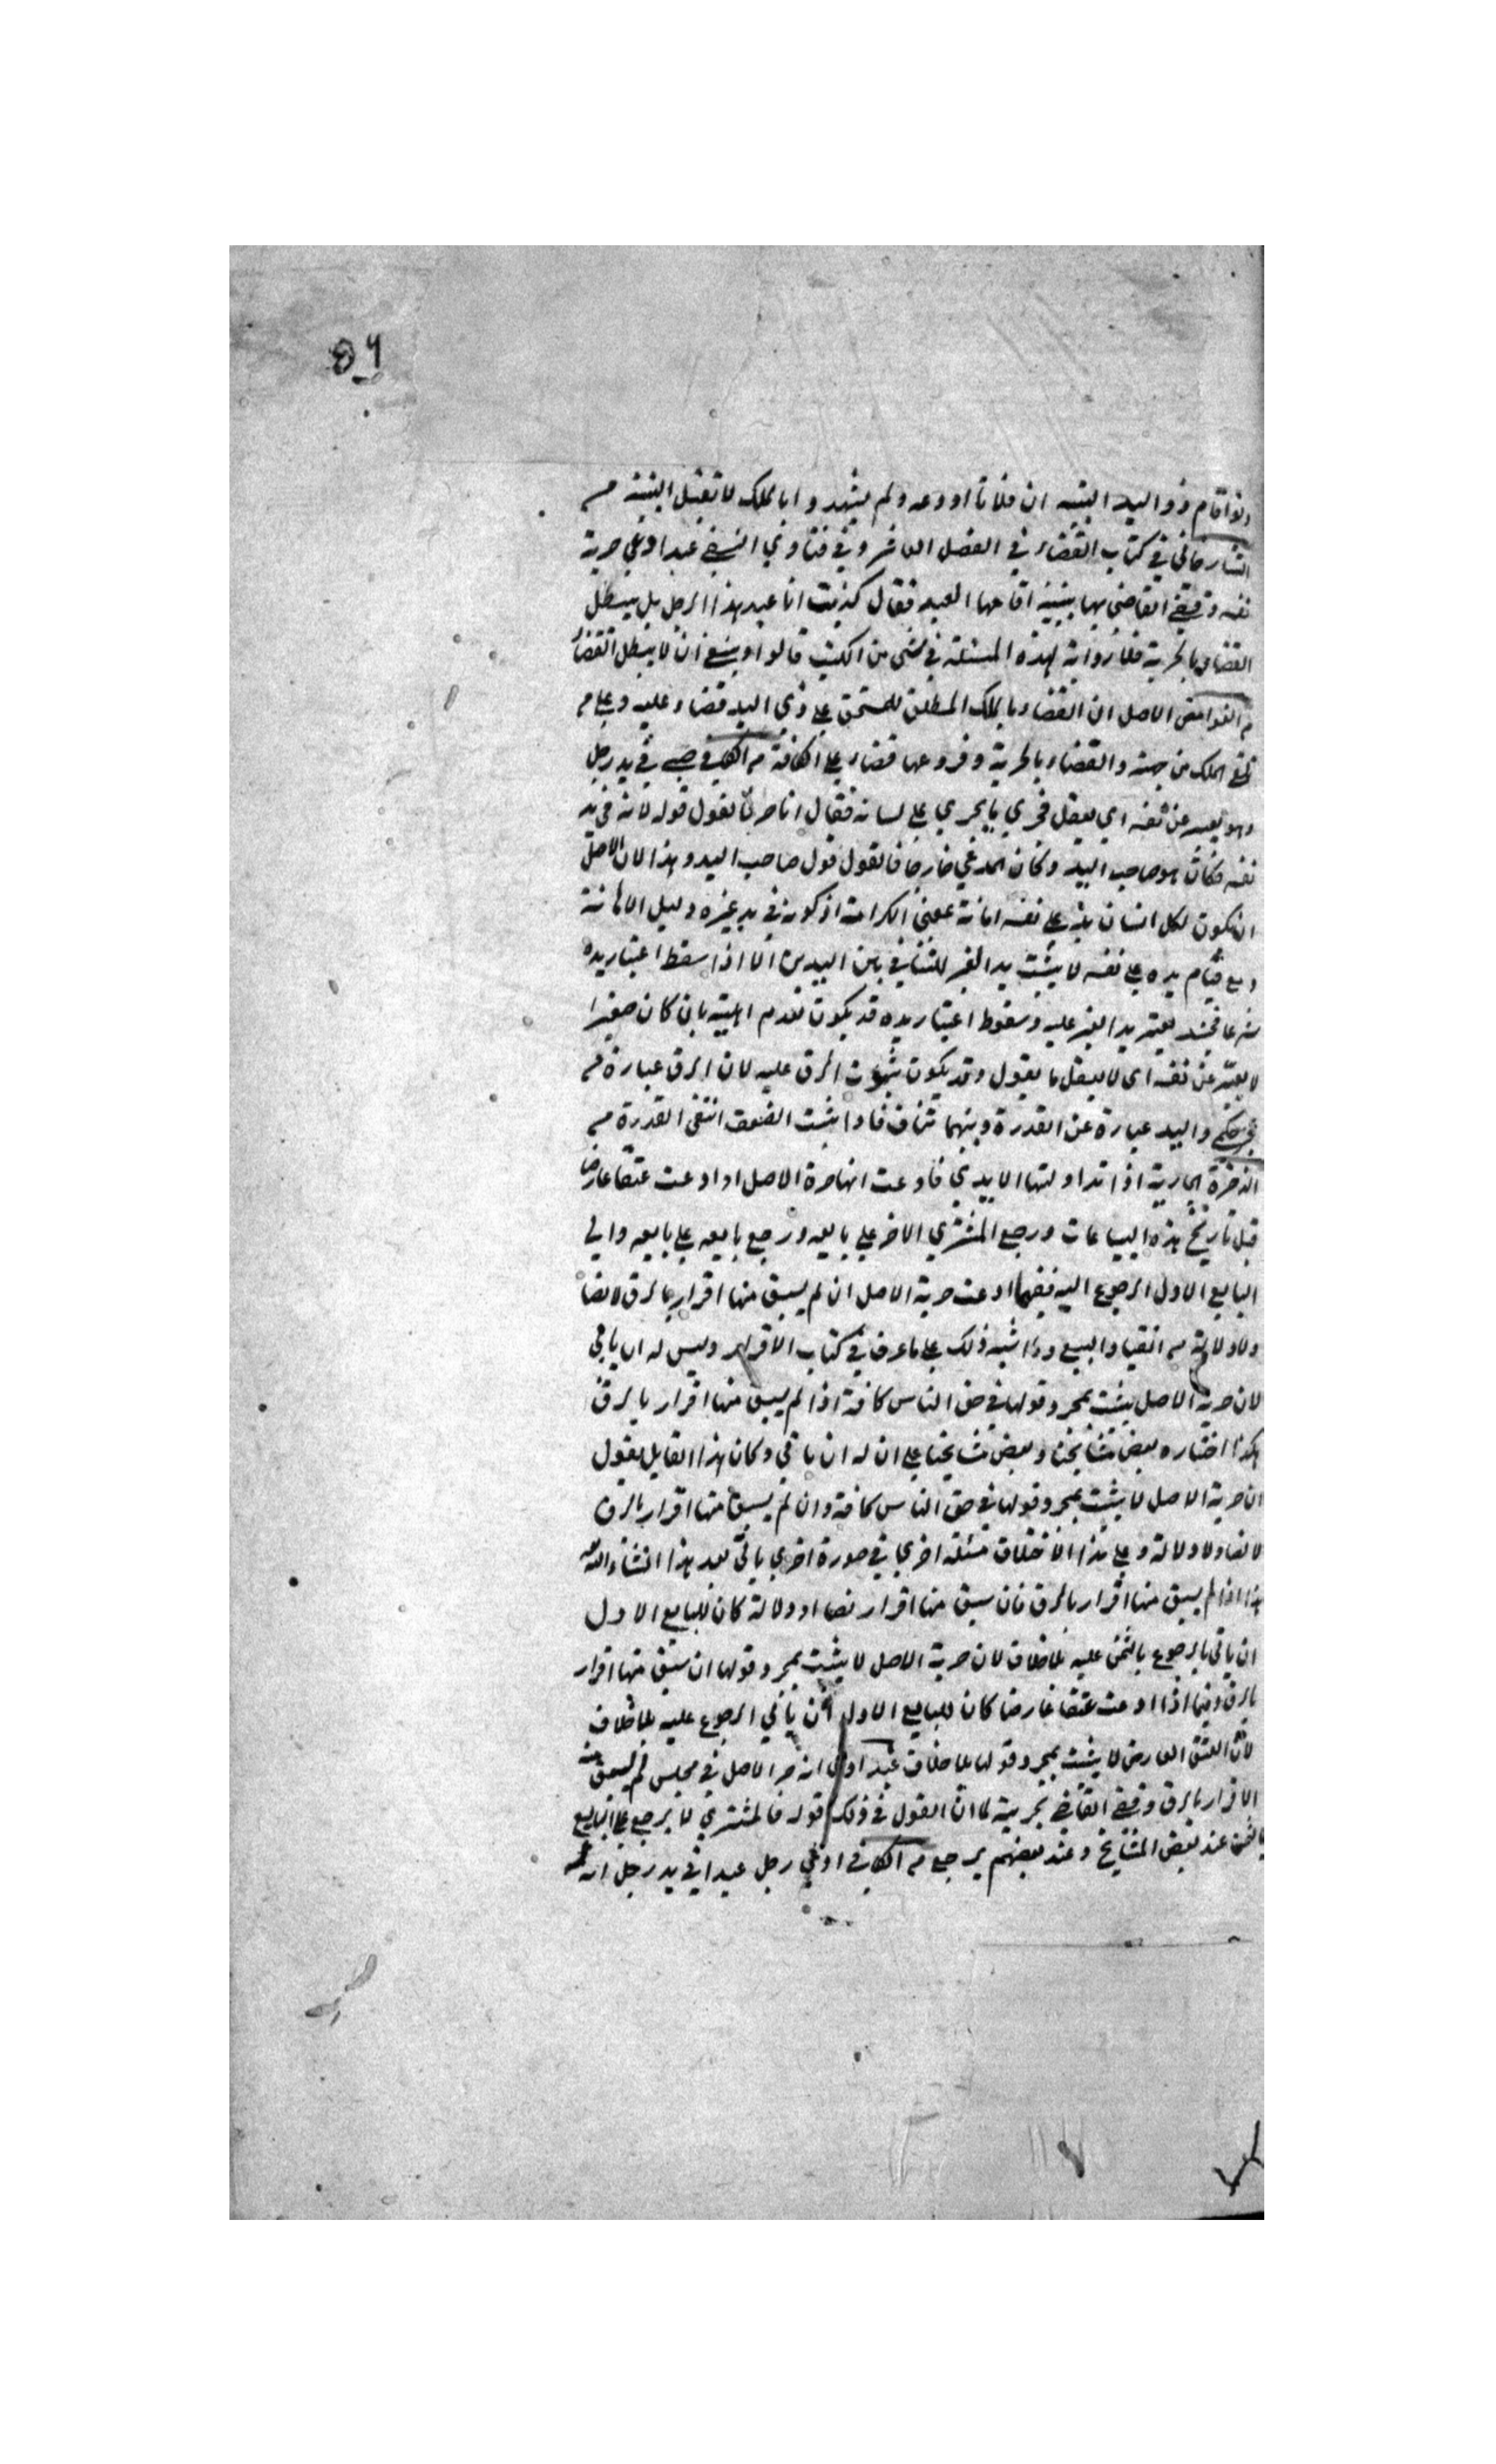 ٥٦
ولو اقام ذو اليد البينه ان فلانا اودعه ولم يشهدوا بالملك لا تقبل البينة من
التتارخانى في كتاب القضاء في الفصل العاشر وفي فتاوي النسفي عبد ادعي حرية
نفسه وقضي القاضى بها ببينة اقامها العبد فقال كذبت انا عبد هذا الرجل هل يبطل
القضاء بالحرية فلا رواية لهذه المسئلة في شى من الكتب قالوا وينبغي ان لا يبطل القضاء
من الغوامض الاصل ان القضاء بالملك المطلق للمستحق علي ذي اليد قضاء عليه وعلي من
تلقي الملك من جهته والقضاء بالحرية وفروعها قضاء علي الكافة من الكافي صبي في يد رجل
وهو يعبر عن نفسه اي يعقل فجري ما يجري علي لسانه فقال انا حر فالقول قوله لانه في يد
نفسه فكان هو صاحب اليد وكان المدعي خارجا فالقول قول صاحب اليد وهذا لان الاصل
ان يكون لكل انسان يد علي نفسه ابانة لمعنى الكرامة اذ كونه في يد غيره دليل الاهانة
ومع قيام يده علي نفسه لا يثبت يد الغير للتنافي بين اليدين الا اذا سقط اعتبار يده
شرعا فحينئذ يعتبر يد الغير عليه وسقوط اعتبار يده قد يكون لعدم اهليته بان كان صغيرا
لا يعبر عن نفسه اى لا يعقل ما يقول وقد يكون بثبوت الرق عليه لان الرق عبارة من
عجز حكمي واليد عبارة عن القدرة وبينهما تناف فاذا ثبت الضعف انتفى القدرة من
الذخيرة الجارية اذا تداولتها الايدي فادعت انها حرة الاصل او ادعت عتقا عارضا
قبل تاريخ هذه البياعات ورجع المشتري الاخر علي بايعه ورجع بايعه علي بايعه وابي
البايع الاول الرجوع اليه ففيما ادعت حرية الاصل ان لم يسبق منها اقرار بالرق لا نصا
ولا دلالة من انقياد البيع وما اشبه ذلك علي ما عرف في كتاب الاقرار وليس له ان يابى
لان حرية الاصل يثبت بمجرد قولها في حق الناس كافة اذا لم يسبق منها اقرار بالرق
هكذا اختاره بعض مشايخنا وبعض مشايخنا علي ان له ان يابى وكان هذا القايل يقول
ان حرية الاصل لا يثبت بمجرد قولها في حق الناس كافة وان لم يسبق منها اقرار بالرق
لا نصا ولا دلالة وعلي هذا الاختلاف مسئلة اخري في صورة اخري ياتى بعد هذا انشاء الله
هذا اذا لم يسبق منها اقرار بالرق فان سبق منها اقرار نصا او دلالة كان للبايع الاول
ان يابى الرجوع بالثمن عليه بلا خلاف لان حرية الاصل لا يثبت بمجرد قولها ان سبق منها اقرار
بالرق وفيما اذا ادعت عتقا عارضا كان للبايع الاول ان يابي الرجوع عليه بلا خلاف
لان العتق العارض لا يثبت بمجرد قولها بلا خلاف عبد ادعى انه حر الاصل في مجلس لم يسبق منه
الاقرار بالرق وقضي القاضي بحريته لما ان القول في ذلك قوله فالمشتري لا يرجع علي البايع
بالثمن عند بعض المشايخ وعند بعضهم يرجع من الكافي ادعي رجل عبدا في يد رجل انه